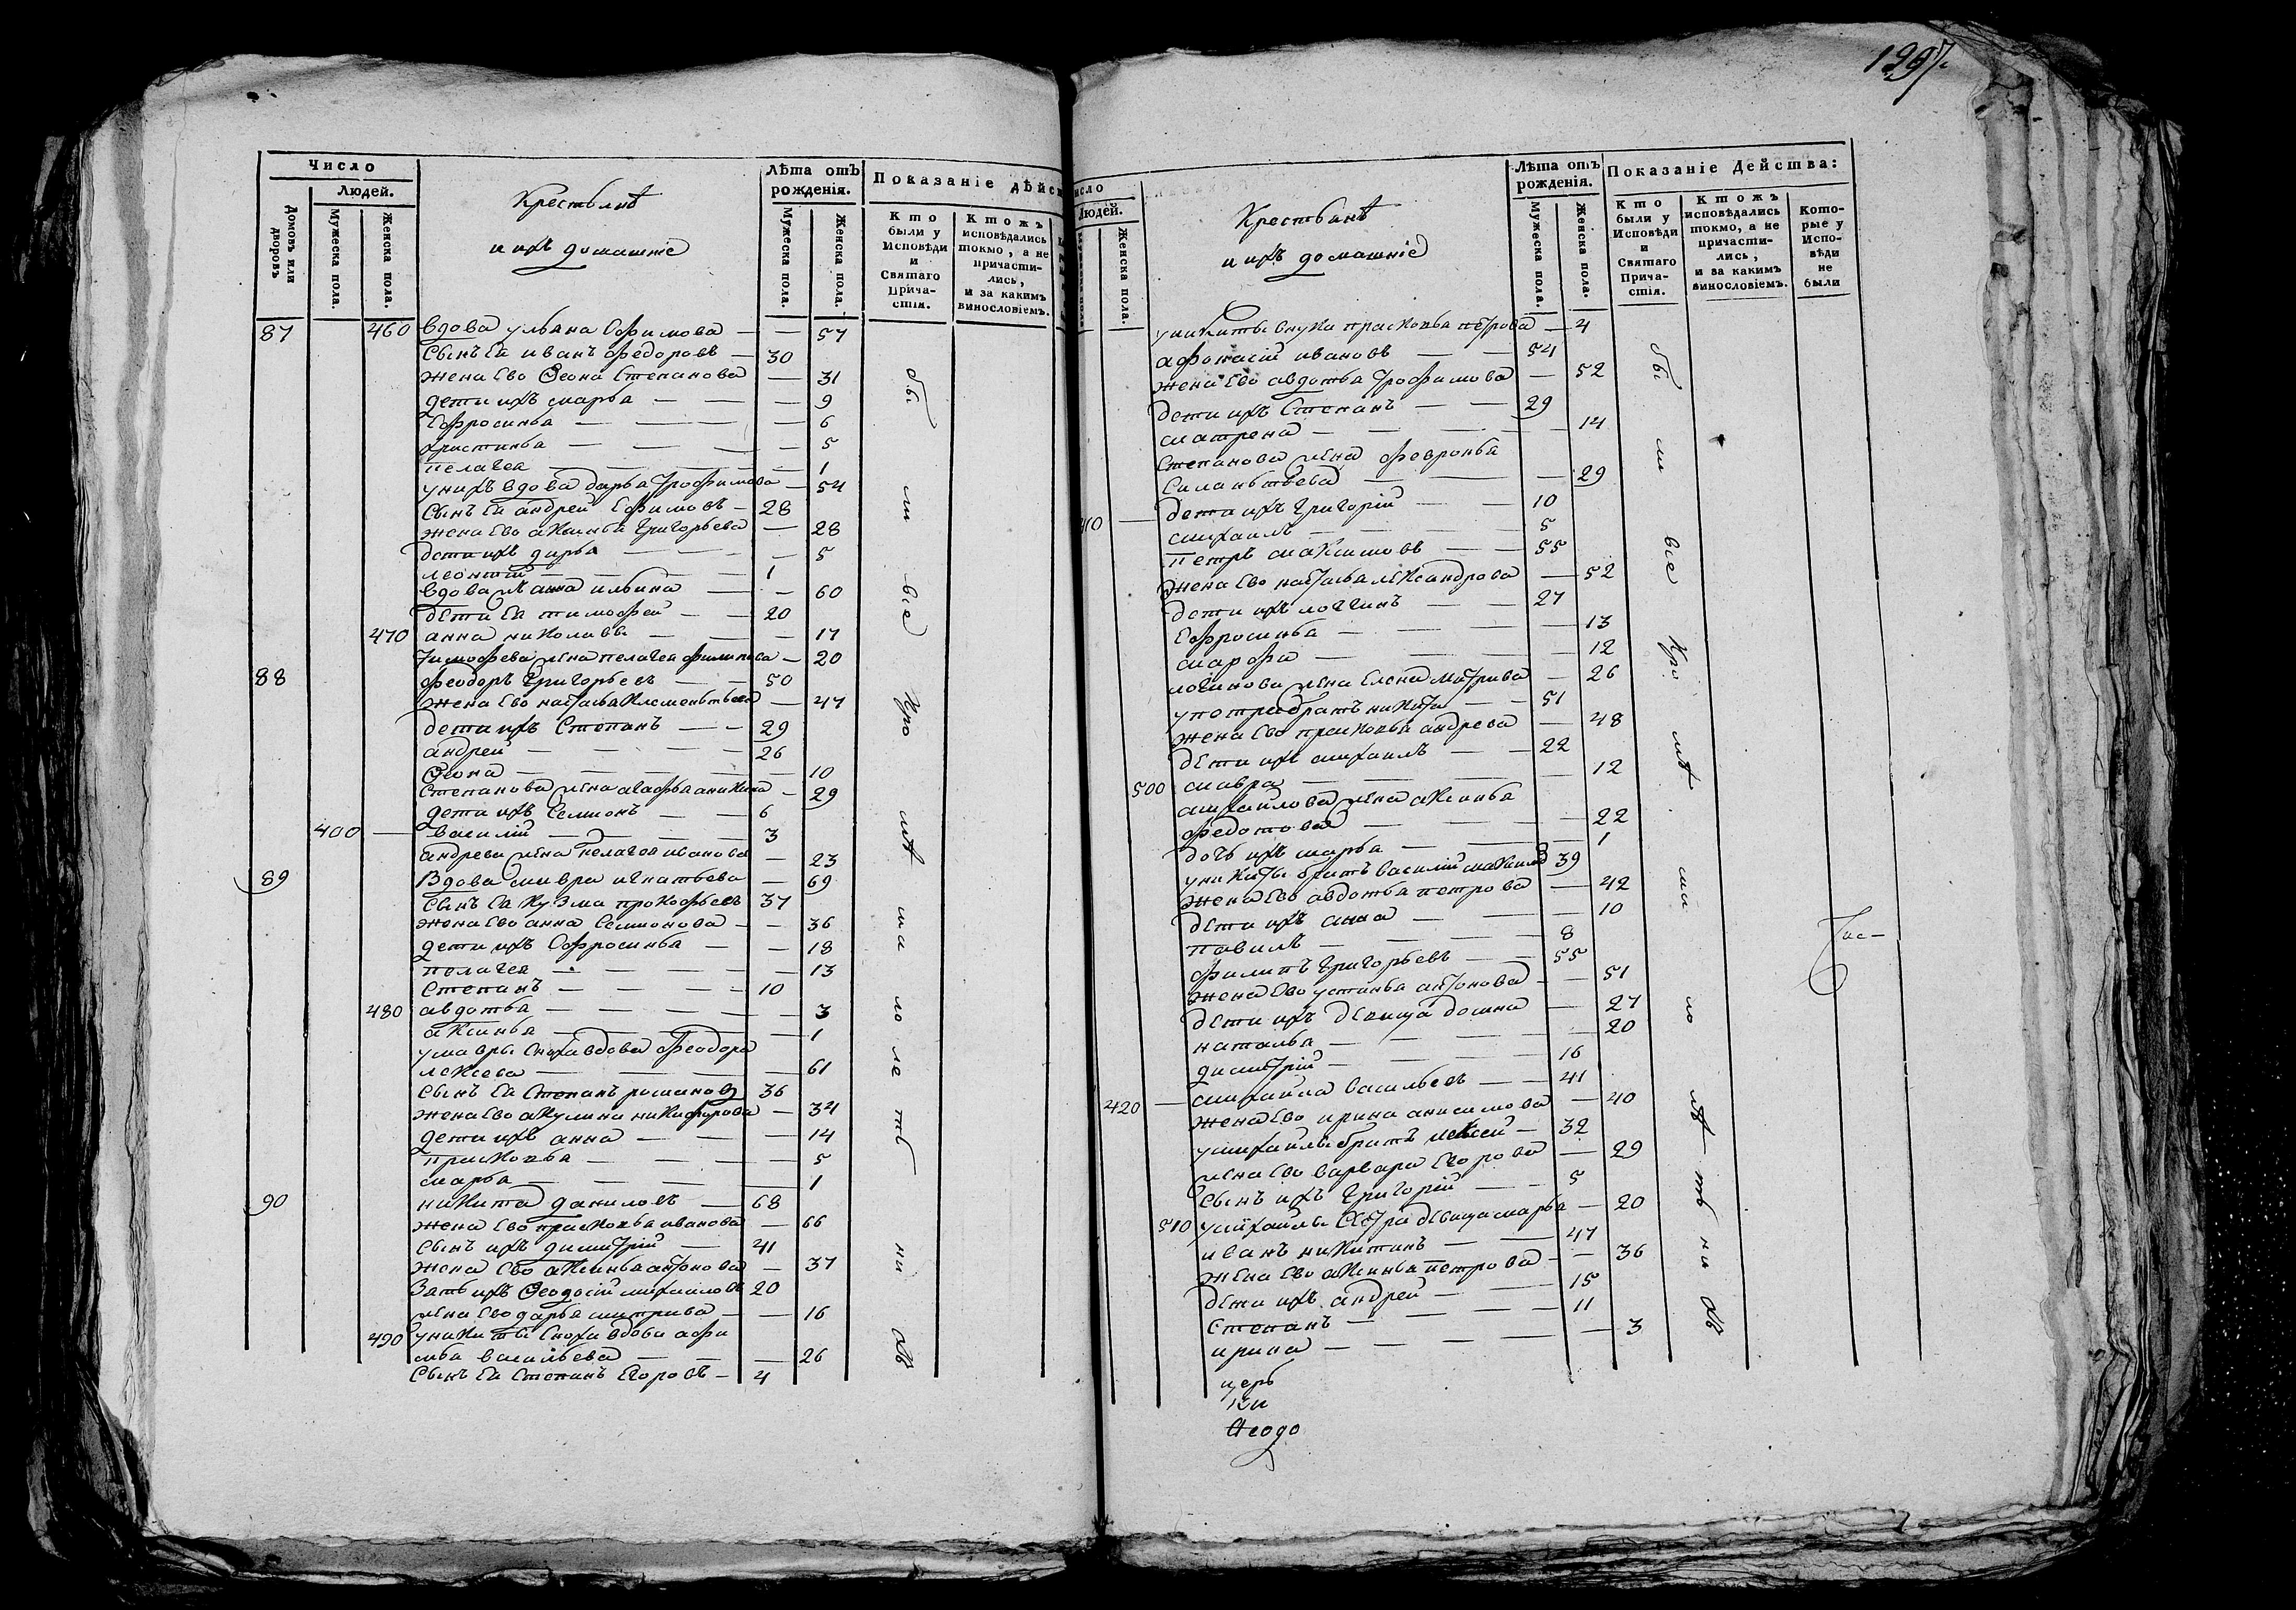 1997
Число
Людей.
Домовъ или дворовъ
Мужеска пола.
Женска пола.
Крестьянѣ
и ихъ домашніе
Лѣта отъ рожденія.
Мужеска пола.
Женска пола.
Показаніе дѣйс
Кто были у Исповѣди и Святаго Прича- стія.
Ктожъ исповѣдались токмо, а не причасти- лись, и за какимъ винословіемъ.
87 460 вдова ульяна Ефимова — — 57
сынъ ея иванъ федоровъ — 30
жена ево Ѳеона Степанова — 31
дети ихъ марья — — — 9
Ефросинья — — — — 6
христинья — — — — 5
пелагея — — — — 1
у нихъ вдова дарья трофимова — 54
сынъ ея андрей Ефимовъ — 28
жена ево аксинья григорьева — 28
дети ихъ дарья — — — 5
леонтій — — — — 1
вдова анна ильина — — 60
дети ея тимофей — — 20
470 анна николавы — — — 17
тимофева жена пелагея филипова — 20
88 феодоръ григорьевъ — — 50
жена ево настасья клементьева — 47
дети ихъ Степанъ — — 29
андрей — — — — 26
Ѳеона — — — — 10
Степанова жена агафья аникина — 29
дети ихъ Семионъ — — 6
400 — василій — — — 3
андрева жена пелагея иванова — 23
89 Вдова мавра игнатьева — 69
сынъ ея кузма прокофьевъ 37
жена ево анна Семионова — — 36
дети ихъ Ефросинья — — 18
пелагея — — — — 13
Степанъ — — — — 10
480 авдотья — — — — 3
аксинья — — — — 1
у мавры сноха вдова феодора
лексева — — — — 61
сынъ ея Степанъ романов 36
жена ево акулина никифорова — 34
дети ихъ анна — — — 14
прасковья — — — — 5
марья — — — — 1
90 никита даниловъ — 68
жена ево прасковья иванова — 66
сынъ ихъ димитрій — 41
жена ево аксинья антонова — 37
Зять ихъ Ѳеодосій михаиловъ 20
жена ево дарья митрива — — 16
490 у никиты сноха вдова афи
мья васильева — — — 26
сынъ ея Степанъ Егоровъ — 4
бы ли все кро мѣ ма ло ле тъ ни хъ
исло
Людей.
Женска пола.
Крестьянѣ
и ихъ домашніе
Лѣта отъ рожденія.
Мужеска пола.
Женска пола.
Показаніе Действа:
Кто были у Исповѣди и Святаго Прича- стія.
Ктожъ исповѣдались токмо, а не причасти- лись, и за какимъ винословіемъ.
Кото- рые у Испо- вѣди не были
у никиты внука прасковья петрова — 4
афонасій ивановъ — — 54
жена ево авдотья трофимова — 52
дети ихъ Степанъ — — 29
матрена — — — — 14
Степанова жена февронья
Силантьева — — — 29
410 — дети ихъ григорій — — 10
михаилъ — — — 5
петръ максимовъ — — 55
жена ево настасья лександрова — 52
дети ихъ логгинъ — — 27
Ефросинья — — — — 13
марфа — — — — 12
логинова жена Елена митрива — 26
у петра братъ никита — — 51
жена ево прасковья андрева — 48
дети ихъ михаилъ — — 22
500 мавра — — — — 12
михаилова жена аксинья
федотова — — — — 22
дочь ихъ марья — — — 1
у никиты братъ василій максимо 39
жена ево авдотья петрова — 42
дети ихъ анна — — — 10
павилъ — — — — 8
филипъ григорьевъ — — 55
жена ево устинья антонова — — 51
дети ихъ девица домна — 27
наталья — — — — 20
димитрій — — — — 16
420 — михаила васильевъ — — 41
жена ево ирина анисимова — 40
у михаилы братъ лексей — 32
жена ево варвара Егорова — 29
сынъ ихъ григорій — — 5
510 у михаилы сестра девица марья — 20
иванъ никитинъ — — 47
жена ево аксинья петрова — — 36
дети ихъ андрей — — — 15
Степанъ — — — — 11
ирина — — — — 3
церь
ки
Ѳеодо
бы ли все кро мѣ ма ло лѣ тъ ни хъ